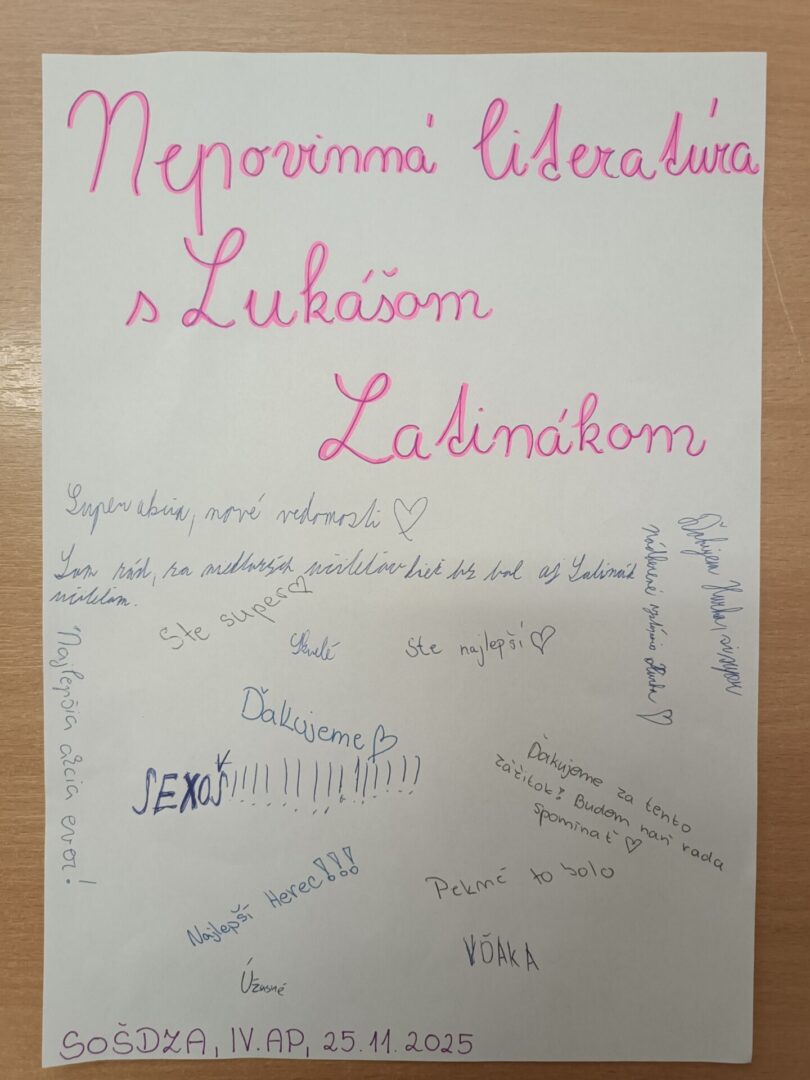 Nepovinná literatúra
s Lukášom
Latinákom
Super akcia, nové vedomosti ♡
Som rád, za učiteľov bol aj Latinák
učiteľom.
Ste super ♡
Skvelé
Ste najlepší ♡
Ďakujem
Najlepšia akcia ever!
Ďakujeme ♡
SEXOŠ!!!!!!!!!!!!!!!
Ďakujeme za tento
zážitok! Budem naň rada
spomínať ♡
Najlepší Herec!!!
Pekné to bolo
VĎAKA
Úžasné
SOŠDZA, IV.AP, 25.11.2025